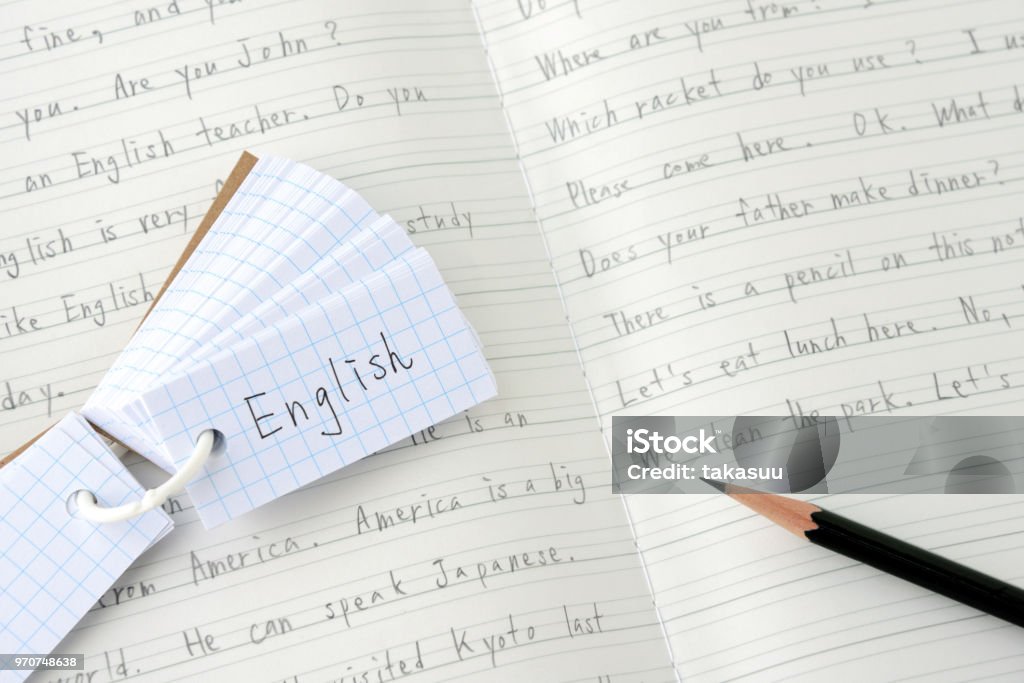 fine, and you
you. Are you John?
an English teacher. Do you
English is very
study
like English
day.
He is an
from America. America is a big
world. He can speak Japanese.
visited Kyoto last
English
Where are you from? I
Which racket do you use? I
Please come here. OK. What
Does your father make dinner?
There is a pencil on this
Let's eat lunch here. No,
the park. Let's
iStock™
Credit: takasuu
970748638